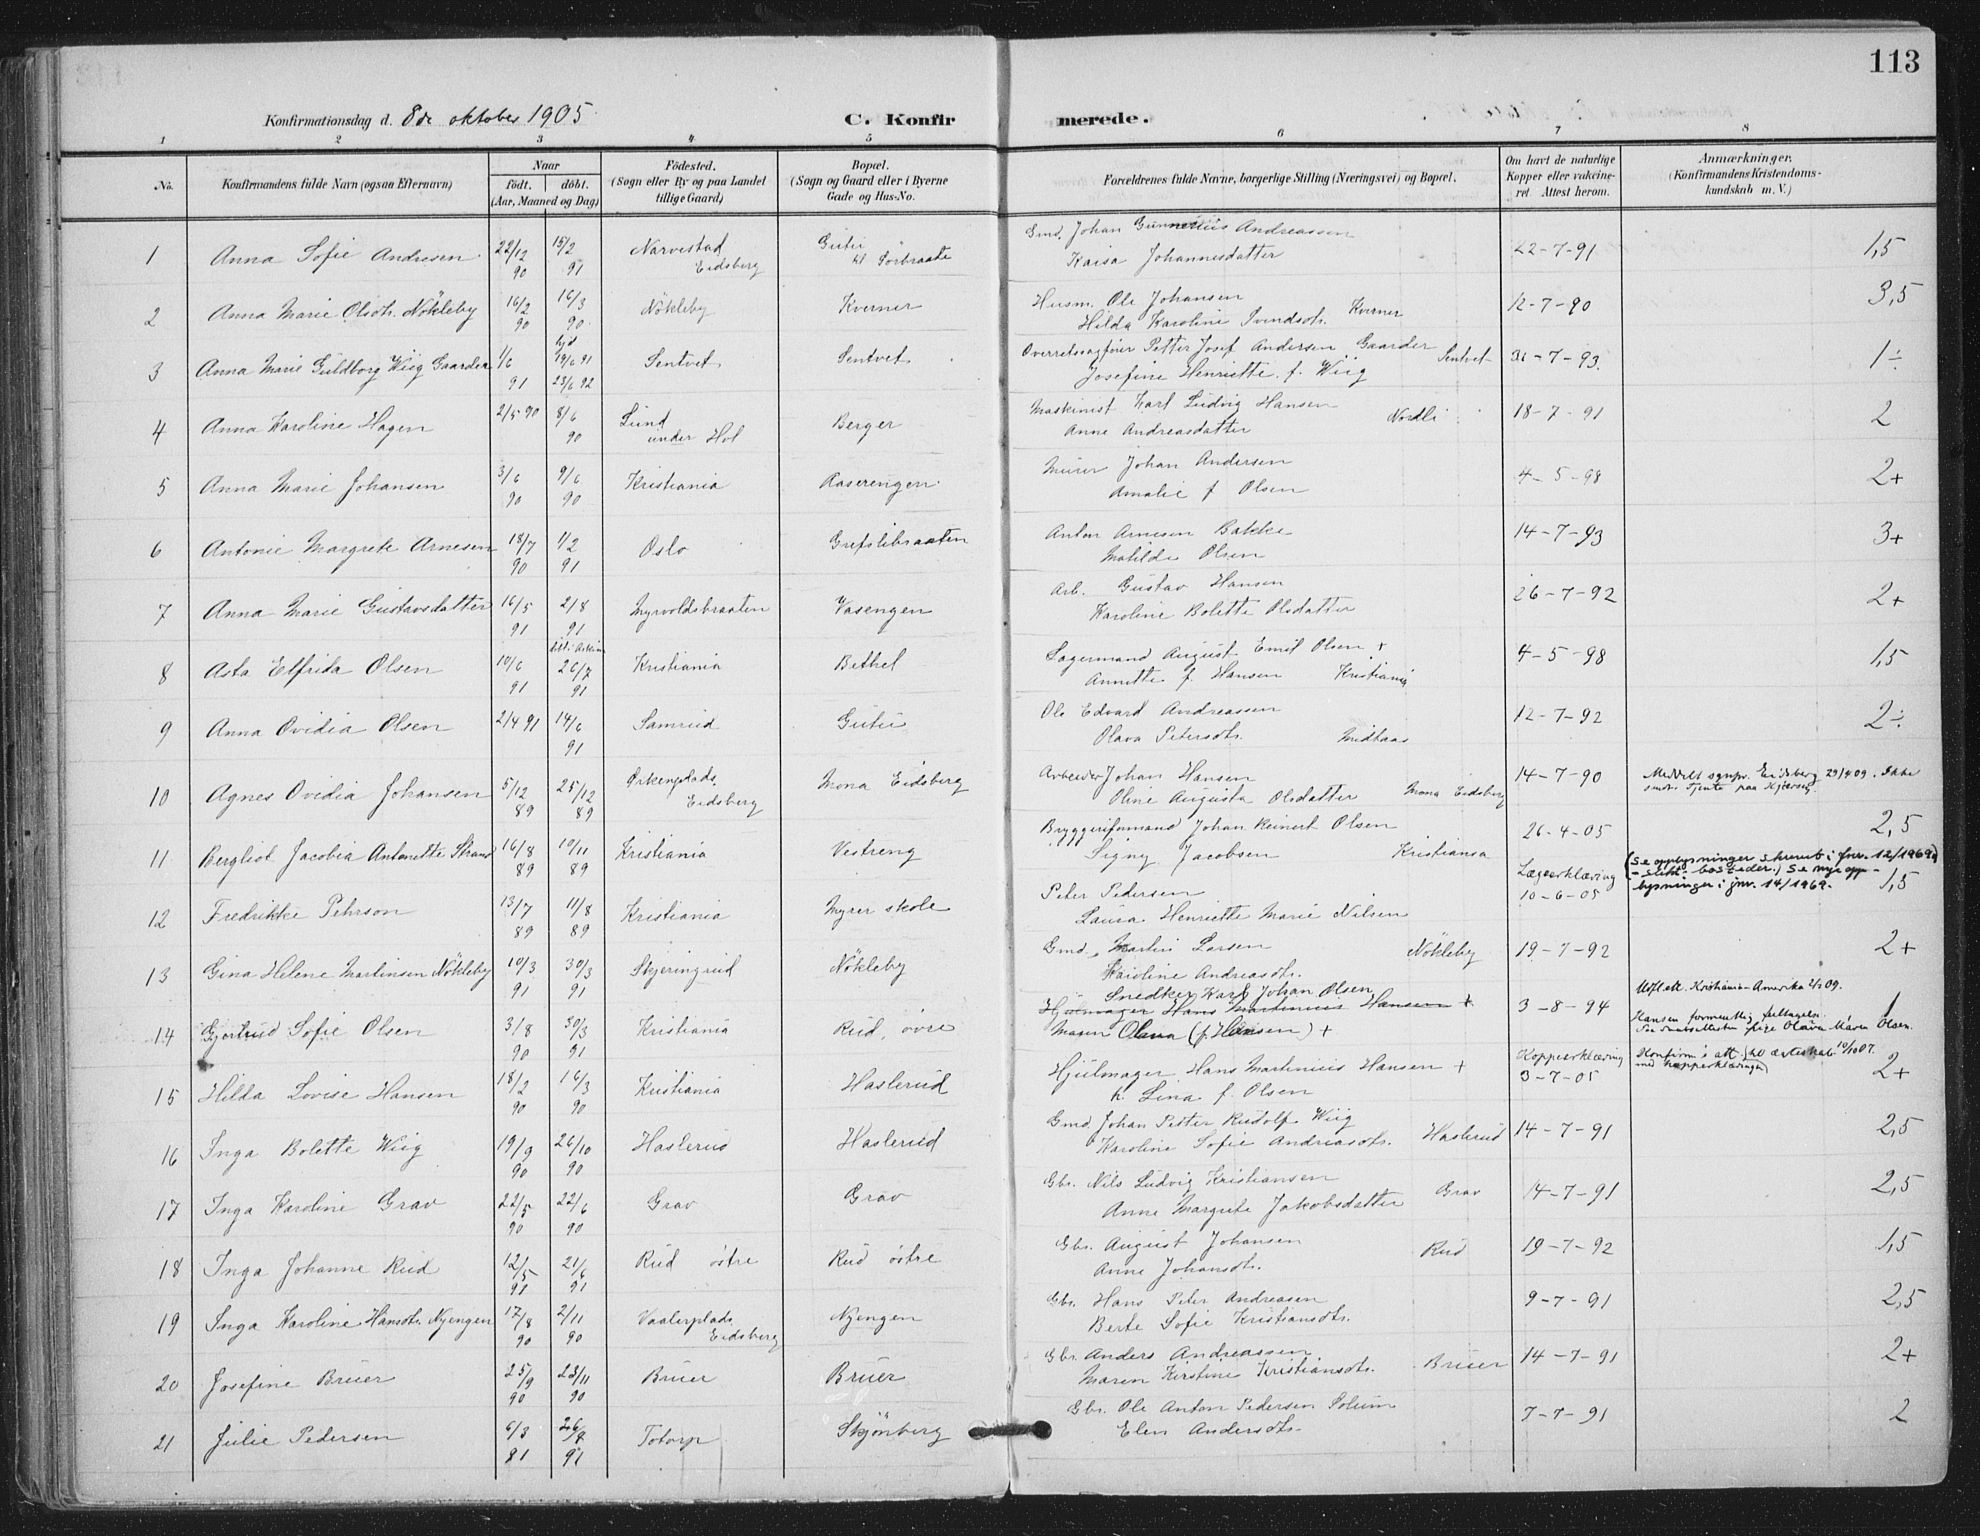 113
Konfirmationsdag d. 8de oktober 1905. C. Konfirmerede.
1 2 3 4 5 6 7 8
No. Konfirmandens fulde Navn (ogsaa Efternavn) Naar födt. döbt. (Aar, Maaned og Dag) Födested. (Sogn eller By og paa Landet tillige Gaard) Bopæl. (Sogn og Gaard eller i Byerne Gade og Hus-No. Forældrenes fulde Navne, borgerlige Stilling (Næringsvei) og Bopæl. Om havt de naturlige Kopper eller vakcineret. Attest herom. Anmærkninger. (Konfirmandens Kristendomskundskab m. V.)
1 Anna Sofie Andresen 22/12 90 15/2 91 Narvestad Eidsberg Gutu til Sörbraate Gmd. Johan Gunnerius Andreassen Kaisa Johannesdatter 22-7-91 1,5
2 Anna Marie Olsdt. Nökleby 16/2 90 16/3 90 Nökleby Kverner Husm. Ole Johansen Hilda Karoline Svendsdt. Kverner 12-7-90 3,5
3 Anna Marie Guldborg Wiig Gaarder 1/6 91 hjd 19/6 91 23/6 92 Sentvet Sentvet Overretssagförer Petter Josef Andersen Gaarder Josefine Henriette f. Wiig Sentvet 31-7-93. 1÷
4 Anna Karoline Hagen 2/5 90 8/6 90 Lund under Hol Berger Maskinist Karl Ludvig Hansen Anne Andreasdatter Nordli 18-7-91 2
5 Anna Marie Johansen 3/6 90 9/6 90 Kristiania Raserengen Murer Johan Andersen Amalie f Olsen 4-5-98 2+
6 Antonie Margrete Arnesen 18/7 90 1/2 91 Oslo Grefslibraaten Anton Arnesen Bakke Matilde Olsen 14-7-93 3+
7 Anna Marie Gustavsdatter 16/5 91 2/8 91 Myrvoldsbraaten Vasengen Arb. Gustav Hansen Karoline Bolette Olsdatter 26-7-92 2+
8 Asta Elfrida Olsen 10/6 91 26/7 91 Kristiania Bethel Lagermand August Emil Olsen + Annette f. Hansen Kristiania 4-5-98 1,5
9 Anna Ovidia Olsen 2/4 91 14/6 91 Samrud Gutu Ole Edvard Andreassen Olava Petersdt. Midtaas 12-7-92 2÷
10 Agnes Ovidia Johansen 5/12 89 25/12 89 Ørkenplads, Eidsberg Mona Eidsberg Arbeider Johan Hansen Oline Augusta Olsdatter Mona Eidsberg 14-7-90 Meddelt sgnpr. Eidsberg 29/4 09. Ikke
11 Bergliot Jacobia Antonette Strand 16/8 89 10/11 89 Kristiania Vestreng Bryggeriformand Johan Reinert Olsen Signy Jacobsen Kristiania 26-4-05 2,5 (Se opplysninger skrevet i jnr. 12/1969
12 Fredrikke Pehrson 13/7 89 11/8 89 Kristiania Myrer skole Peter Pedersen Laura Henriette Marie Nilsen Lægeerklæring 10-6-05 Se nye opplysninger i jnr. 14/1969. 1,5
13 Gina Helene Martinsen Nökleby 10/3 91 30/3 91 Skjeringrud Nökleby Gmd. Martin Larsen Karoline Andreasdt. Nökleby 19-7-92 2+
14 Gjertrud Sofie Olsen 3/8 90 30/3 91 Kristiania Rud, övre Snedker Karl Johan Olsen Hjulmager Hans Martinius Hansen + Maren Olava (f. Hansen) + 3-8-94 Utfl. att. Kristiania-Amerika 2/1 09. Hansen formentlig feltagelse. pige Olava Maren Olsen. 1
15 Hilda Lovise Hansen 18/2 90 16/3 90 Kristiania Haslerud Hjulmager Hans Martinius Hansen + h. Lina f. Olsen Koppeerklæring 3-7-05 Konfirm's att. til ægteskab 10/10 07. med koppeerklæringen) 2+
16 Inga Bolette Wiig 19/9 90 26/10 90 Haslerud Haslerud Gmd Johan Petter Rudolf Wiig Karoline Sofie Andreasdt. Haslerud 14-7-91 2,5
17 Inga Karoline Grav 22/5 90 22/6 90 Grav Grav Gbr. Nils Ludvig Kristiansen Anne Margrete Jakobsdatter Grav 14-7-91 2,5
18 Inga Johanne Rud 12/5 91 21/6 91 Rud östre Rud östre Gbr. August Johansen Anne Johansdt. Rud 19-7-92 1,5
19 Inga Karoline Hansdt. Nyengen 17/8 90 2/11 90 Vaalerplads, Eidsberg Nyengen Gbr. Hans Peter Andreasen Berte Sofie Kristiansdt. 9-7-91 2,5
20 Josefine Bruer 25/9 90 23/11 90 Bruer Bruer Gbr. Anders Andreassen Maren Kirstine Kristiansdt. Bruer 14-7-91 2+
21 Julie Pedersen 6/3 81 91 Totorp Skjönberg Gbr. Ole Anton Pedersen Solum Elen Andersdt. 7-7-91 2